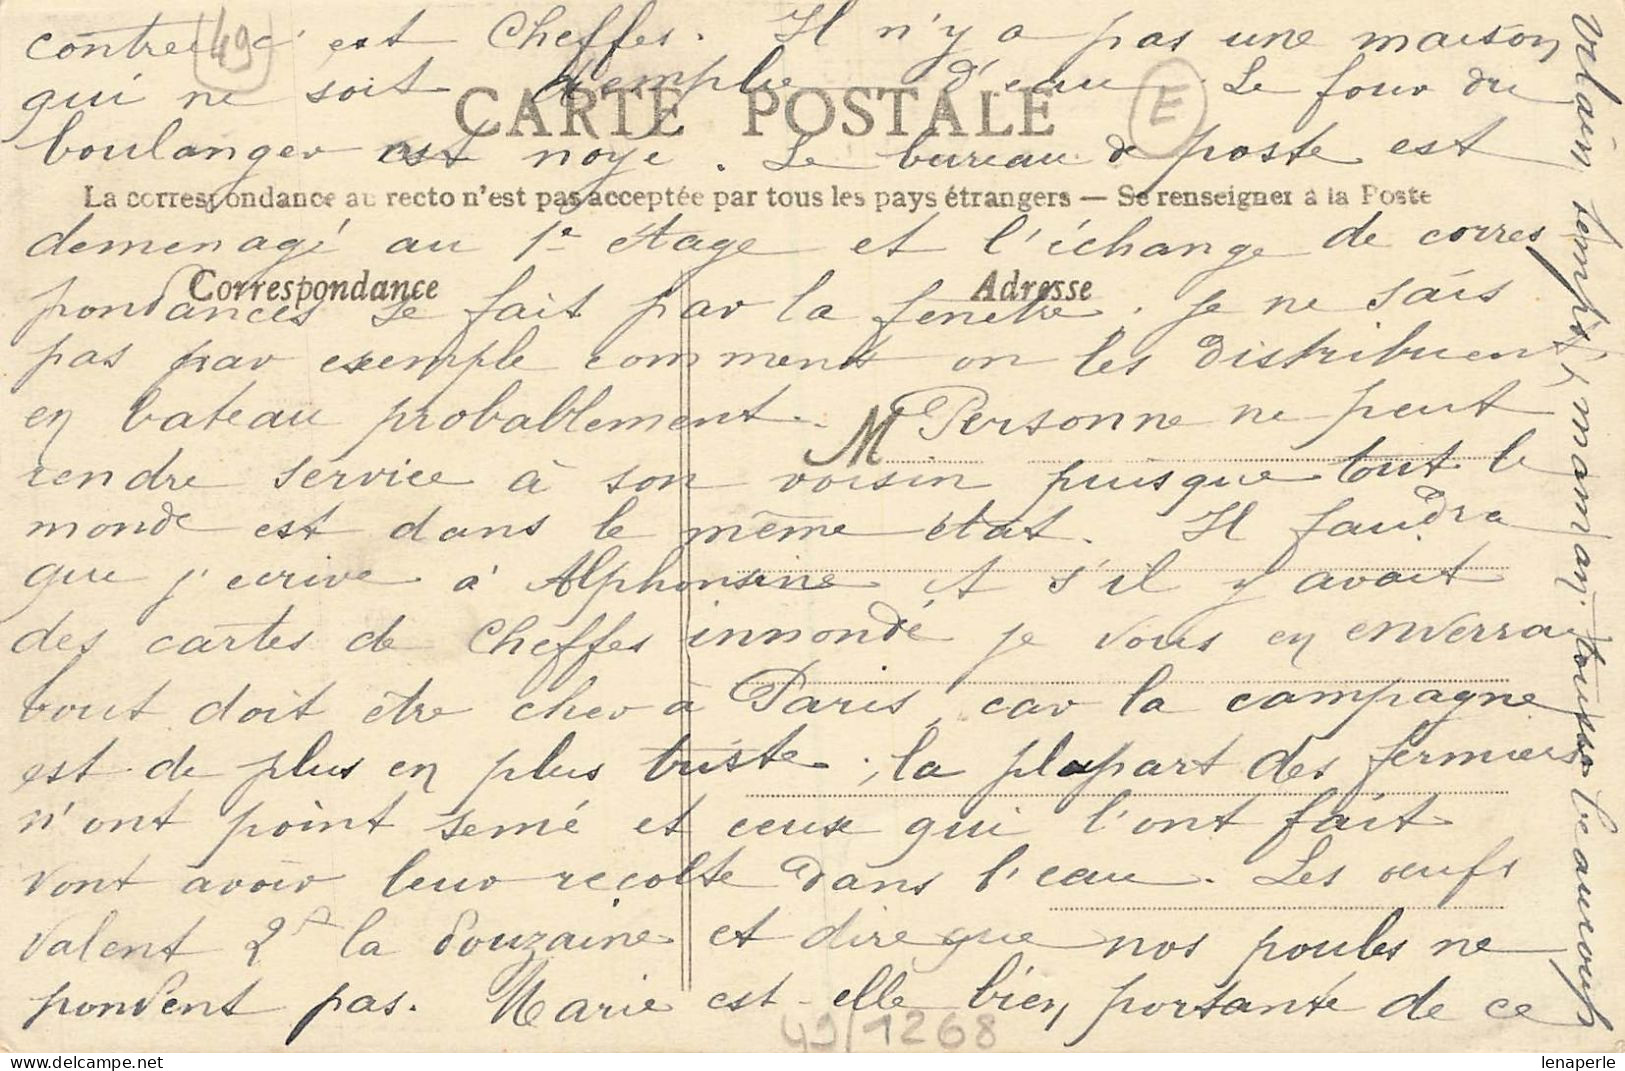 contrée c'est Cheffes. Il n'y a pas une maison
49
qui ne soit remplie d'eau. Le four du
CARTE POSTALE
E
boulanger est noyé. Le bureau de poste est
La correspondance au recto n'est pas acceptée par tous les pays étrangers — Se renseigner à la Poste
demenagé au 1e étage et l'échange de corres
Correspondance
Adresse
pondances se fait par la fenêtre. Je ne sais
pas par exemple comment on les distribue
en bateau probablement. Personne ne peut
M
rendre service à son voisin puisque tout le
monde est dans le même état. Il faudra
que j'ecrive à Alphonsine et s'il y avait
des cartes de Cheffes innondé je vous en enverrai
tout doit être cher à Paris, car la campagne
est de plus en plus triste; la plupart des fermiers
n'ont point semé et ceux qui l'ont fait
vont avoir leur recolte dans l'eau. Les œufs
valent 2f la douzaine et dire que nos poules ne
pondent pas. Marie est-elle bien portante de ce
49/1268
vilain temps, maman tousse beaucoup
lenaperle